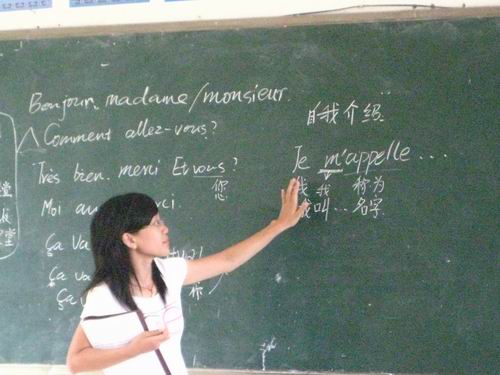 Bonjour. madame/monsieur.
Comment allez-vous?
Très bien. merci Et vous?
您
Moi
Ça va
Ça va
Ça va
你
自我介绍
Je m'appelle ...
我 我 称为
我叫... 名字